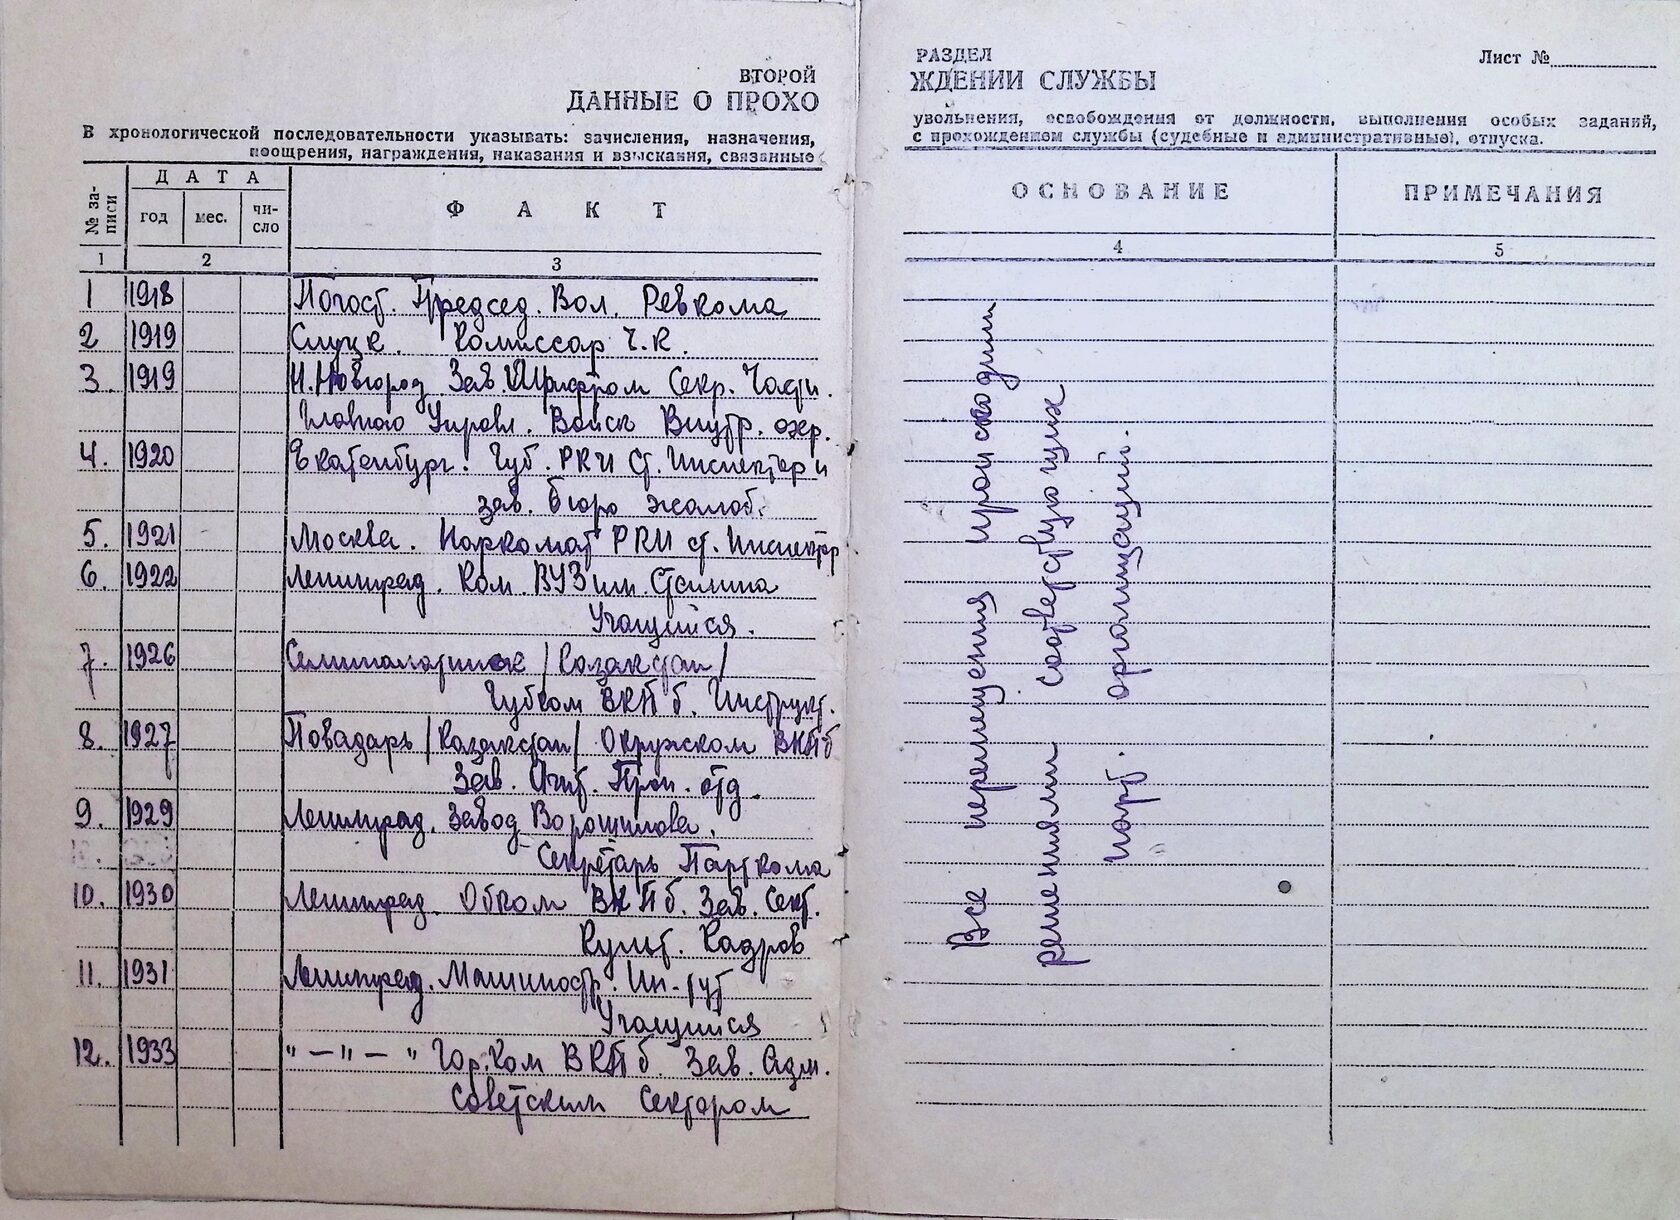 ВТОРОЙ
ДАННЫЕ О ПРОХО
В хронологической последовательности указывать: зачисления, назначения,
поощрения, награждения, наказания и взыскания, связанные
№ за-
писи
ДАТА
год
мес.
чи-
сло
ФАКТ
1
2
3
1 1918 Погост. Председ. Вол. Ревкома
2 1919 Слуцк. Комиссар Ч.К.
3. 1919 Н.Новгород. Зав. Шрифтром Секр. Части.
Главного Управл. Войск Внутр. охр.
4. 1920 Екатенбург. Губ. РКИ Ст. Инспектор и
зав. бюро жалоб.
5. 1921 Москва. Наркомат РКИ ст. Инспектр
6. 1922 Ленинград. Ком. ВУЗ им. Сталина
Учащийся.
7. 1926 /Казакстан/
Губком ВКП б. Инструкт.
8. 1927 Повадарь /Казакстан/ Окружком ВКПб
Зав. Агит. Проп. отд.
9. 1929 Ленинград. Завод Ворошилова.
Секретарь Парткома
10. 1930 Ленинград. Обком ВКПб. Зав. Сект.
Культ. Кадров
11. 1931 Ленинград. Машиностр. Ин-тут
Учащийся
12. 1933 " — " — " Гор.Ком ВКПб. Зав. Адм.
Советским Сектором
РАЗДЕЛ
Лист №
ЖДЕНИИ СЛУЖБЫ
увольнения, освобождения от должности, выполнения особых заданий,
с прохождением службы (судебные и административные), отпуска.
ОСНОВАНИЕ
ПРИМЕЧАНИЯ
4
5
Все перемещения происходили
решениями соответствующих
парт. организаций.